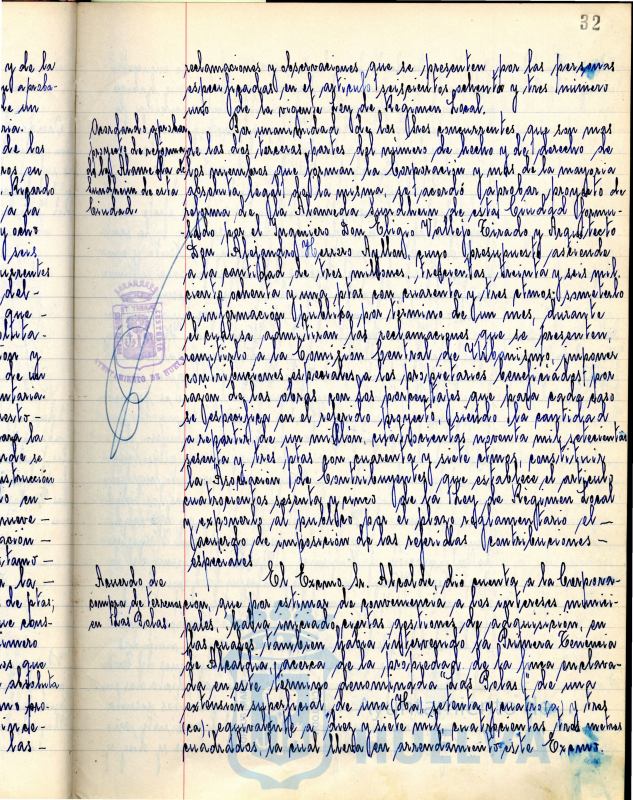 32
reclamaciones y observaciones que se presenten por las personas
especificadas en el artículo seiscientos ochenta y tres número
uno de la vigente Ley de Régimen Local.
Acordando aprobar
proyecto de reforma
de la Alameda de
Sundheim de esta
Ciudad.
Por unanimidad de los Sres concurrentes, que son mas
de las dos terceras partes del número de hecho y de derecho de
los miembros que forman la Corporación y mas de la mayoria
absoluta legal de la misma, se acordó aprobar proyecto de
reforma de la Alameda Sundheim de esta Ciudad formu-
lado por el Ingeniero Don Eligio Vallejo Tirado y Arquitecto
Don Alejandro Herrero Ayllon, cuyo presupuesto asciende
a la cantidad de tres millones, trescientas treinta y seis mil
ciento ochenta y una ptas con cuarenta y tres ctmos, someterlo
a información pública por termino de un mes, durante
el cual se admitirán las reclamaciones que se presenten,
remitirlo a la Comisión Central de Urbanismo, imponer
contribuciones especiales a los propietarios beneficiados por
razón de las obras con los porcentajes que para cada caso
se especifica en el referido proyecto, siendo la cantidad
a repartir de un millón, cuatrocientas noventa mil, setecientas
sesenta y tres ptas con cuarenta y siete ctmos, constituir
la Asociación de Contribuyentes que establece el artículo
cuatrocientos sesenta y cinco de la Ley de Régimen Local
y exponer al publico por el plazo reglamentario el —
acuerdo de imposición de las referidas contribuciones —
especiales
Acuerdo de
compra de terrenos
en Las Polas.
El Excmo. Sr. Alcalde, dió cuenta a la Corpora-
ción, que por estimar de conveniencia a los intereses munici-
pales, habia iniciado ciertas gestiones de adquisicion, en
las cuales tambien habia intervenido la Primera Tenencia
de Alcaldia, acerca de la propiedad de la finca enclava-
da en este termino denominada "Las Polas" de una
extensión superficial de una (Ha), setenta y cuatro (a) y tres
(ca); equivalente a diez y siete mil cuatrocientos tres metros
cuadrados la cual lleva en arrendamiento este Excmo.